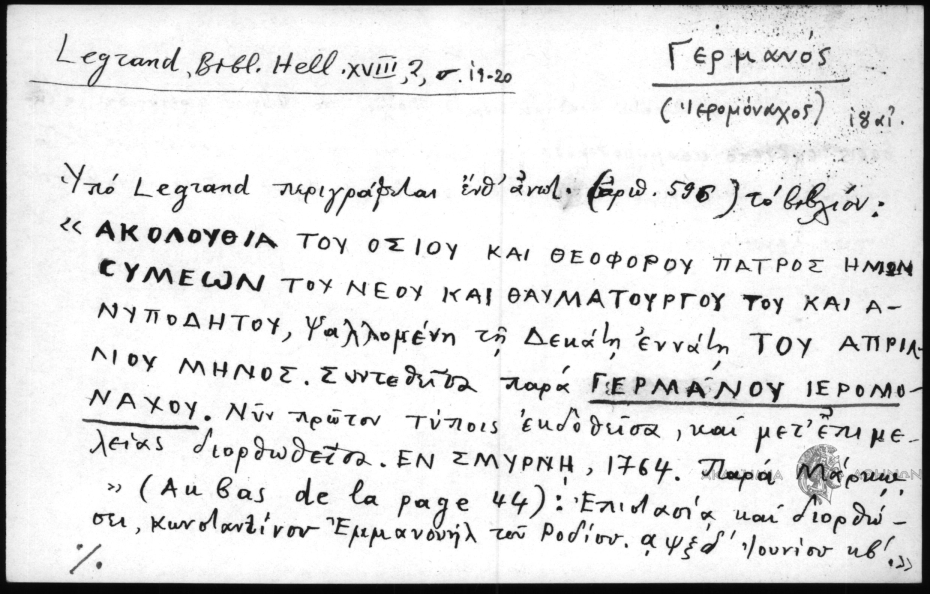 Legrand, Bibl. Hell. XVIII, 2, σ. 19-20
Γερμανός
(Ἱερομόναχος) ιη αἰ.
Ὑπό Legrand περιγράφεται ἐνθ' ἀνωτ. (ἀριθ. 596) τό βιβλίον:
« ΑΚΟΛΟΥΘΙΑ ΤΟΥ ΟΣΙΟΥ ΚΑΙ ΘΕΟΦΟΡΟΥ ΠΑΤΡΟΣ ΗΜΩΝ
ΣΥΜΕΩΝ ΤΟΥ ΝΕΟΥ ΚΑΙ ΘΑΥΜΑΤΟΥΡΓΟΥ ΤΟΥ ΚΑΙ Α-
ΝΥΠΟΔΗΤΟΥ, Ψαλλομένη τῇ Δεκάτῃ ἐννάτῃ ΤΟΥ ΑΠΡΙΛ-
ΛΙΟΥ ΜΗΝΟΣ. Συντεθεῖσα παρά ΓΕΡΜΑΝΟΥ ΙΕΡΟΜΟ-
ΝΑΧΟΥ. Νῦν πρῶτον τύποις ἐκδοθεῖσα, καί μετ' ἐπιμε-
λείας διορθωθεῖσα. ΕΝ ΣΜΥΡΝῌ, 1764. Παρά Μάρκῳ
» (Au bas de la page 44): Ἐπιστασίᾳ καί διορθώ-
σει, Κωνσταντίνου Ἐμμανουήλ τοῦ Ροδίου. αψξδ' Ἰουνίου κβ'.»
%.